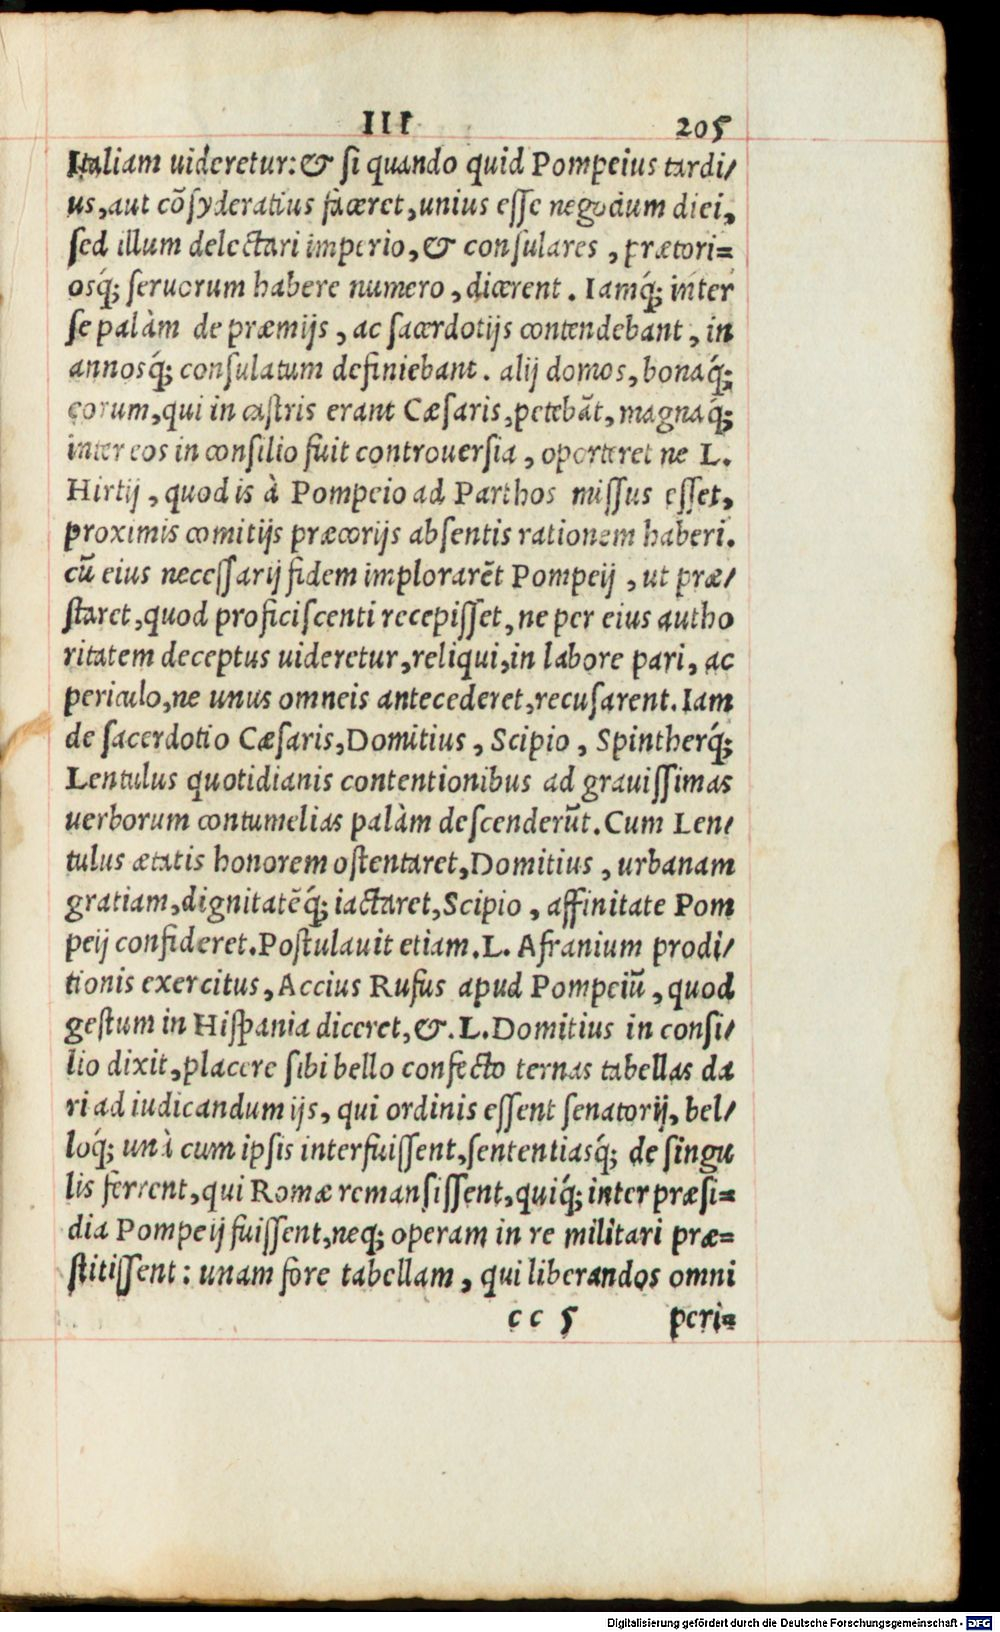 III 205
Italiam uideretur: & si quando quid Pompeius tardi/
us, aut cõsyderatius faceret, unius esse negocium diei,
sed illum delectari imperio, & consulares, prætori=
osq́; seruorum habere numero, dicerent. Iamq́; inter
se palàm de præmijs, ac sacerdotijs contendebant, in
annosq́; consulatum definiebant. alij domos, bonaq́;
eorum, qui in castris erant Cæsaris, petebãt, magnaq́;
inter eos in consilio fuit controuersia, oporteret ne L.
Hirtij, quod is à Pompeio ad Parthos missus esset,
proximis comitijs prætorijs absentis rationem haberi.
cũ eius necessarij fidem implorarẽt Pompeij, ut præ/
staret, quod proficiscenti recepisset, ne per eius autho
ritatem deceptus uideretur, reliqui, in labore pari, ac
periculo, ne unus omneis antecederet, recusarent. Iam
de sacerdotio Cæsaris, Domitius, Scipio, Spintherq́;
Lentulus quotidianis contentionibus ad grauissimas
uerborum contumelias palàm descenderũt. Cum Len/
tulus ætatis honorem ostentaret, Domitius, urbanam
gratiam, dignitatẽq́; iactaret, Scipio, affinitate Pom
peij confideret. Postulauit etiam. L. Afranium prodi/
tionis exercitus, Accius Rufus apud Pompeiũ, quod
gestum in Hispania diceret, &. L. Domitius in consi/
lio dixit, placere sibi bello confecto ternas tabellas da
ri ad iudicandum ijs, qui ordinis essent senatorij, bel/
loq́; unà cum ipsis interfuissent, sententiasq́; de singu
lis ferrent, qui Romæ remansissent, quiq́; inter præsi=
dia Pompeij fuissent, neq; operam in re militari præ=
stitissent: unam fore tabellam, qui liberandos omni
cc 5 peri=
Digitalisierung gefördert durch die Deutsche Forschungsgemeinschaft - DFG